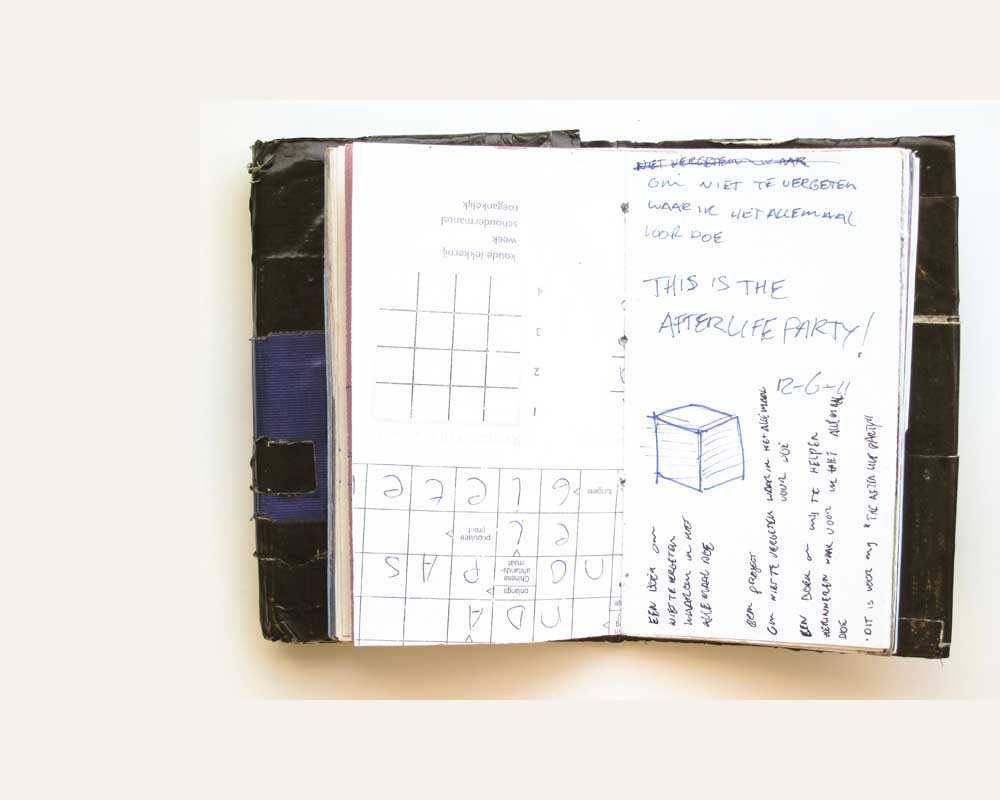 koude lekkernij
week
schoudermantel
toegankelijk
1
2
3
4
tungere
populaire
Chinese
afstands-
maat
onlangs
G L E T E
e L
N O P A S
N D A
NIET VERGETEN WAAR
OM NIET TE VERGETEN
WAAR IK HET ALLEMAAL
VOOR DOE
THIS IS THE
AFTERLIFE PARTY!
12-6-11
EEN BOEK OM
NIET TE VERGETEN
WAAROM IK HET
ALLEMAAL DOE
PROJECT
OM NIET TE VERGETEN WAAR IK HET ALLEMAAL
VOOR DOE
EEN BOEK OM MIJ TE HELPEN
HERINNEREN WAAR VOOR IK HET ALLEMAAL
DOE
· DIT IS VOOR MY "THE AFTER LIFE PARTY!!